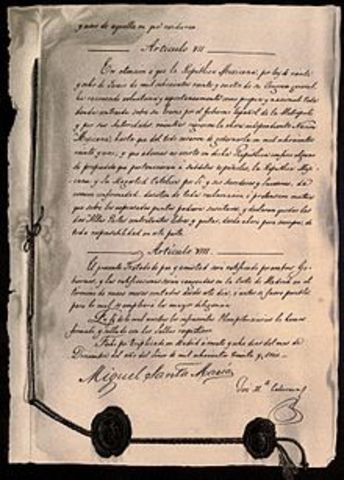 Artículo VII
En atencion a que la República Mexicana, por ley de veinte
y ocho de Junio de mil ochocientos veinte y cuatro de su Congreso general,
ha reconocido voluntaria y espontaneamente como propia y nacional toda
deuda contraida sobre su erario por el Gobierno Español de la Metropoli
y por sus autoridades mientras rigieron la ahora independiente Nacion
Mexicana, hasta que del todo cesaron de gobernarla en mil ochocientos
veinte y uno; y que ademas no existe en dicha República confisco alguno
de propiedades que pertenecieran a subditos españoles, la República Mexi-
cana y Su Magestad Catolica por si y sus herederos y sucesores, de
comun conformidad, desisten de toda reclamacion o pretension mutua
que sobre los espresados puntos pudiera suscitarse, y declaran quedar las
dos Altas Partes contratantes libres y quitas, desde ahora para siempre, de
toda responsabilidad en esta parte.
Artículo VIII
El presente Tratado de paz y amistad será ratificado por ambos Go-
biernos, y las ratificaciones serán cangeadas en la Corte de Madrid en el
termino de nueve meses contados desde este dia, o antes si fuere posible,
para lo cual se empleará la mayor diligencia.
En fe de lo cual nosotros los infrascritos Plenipotenciarios lo hemos
firmado y sellado con los Sellos respectivos.
Fecho por triplicado en Madrid a veinte y ocho dias del mes de
Diciembre del año del Señor de mil ochocientos treinta y seis.
Miguel Santa María
José M.ª Calatrava